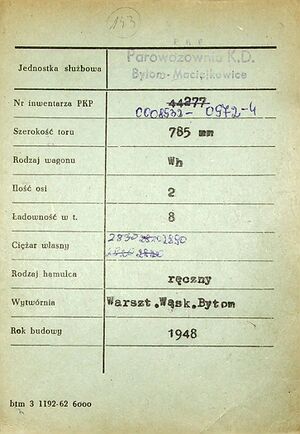 143
PKP
Parowozownia K.D.
Jednostka służbowa
Bytom-Maciejkowice
Nr inwentarza PKP 44277
0008532- 0972-4
Szerokość toru 785 mm
Rodzaj wagonu Wh
Ilość osi 2
Ładowność w t. 8
Ciężar własny 2830 2890
Rodzaj hamulca ręczny
Wytwórnia Warszt.Wąsk.Bytom
Rok budowy 1948
btm 3 1192-62 6000